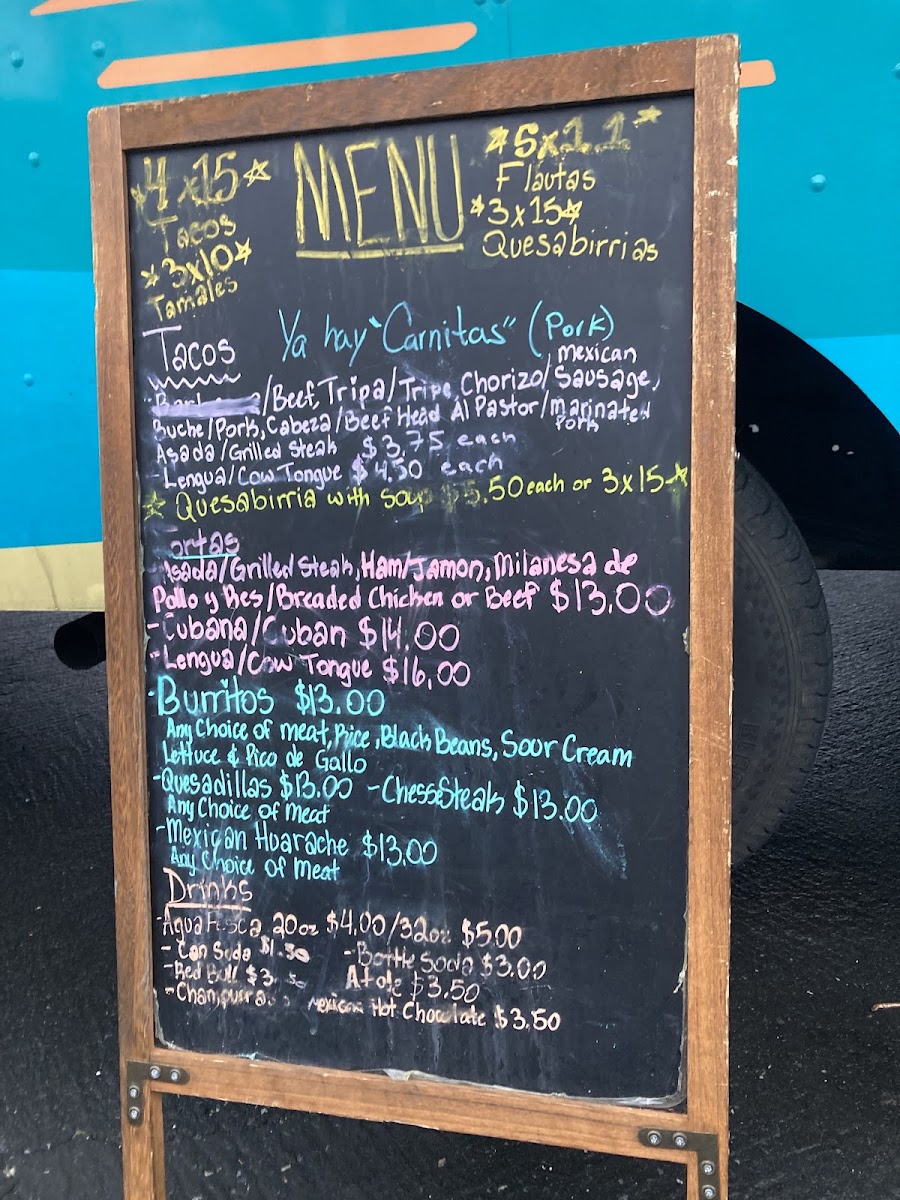 *4x15*
Tacos
*3x10*
Tamales
MENU
*5x11*
Flautas
*3x15*
Quesabirrias
Ya hay "Carnitas" (Pork)
Tacos
/Beef, Tripa/Tripe, Chorizo/Mexican Sausage,
Buche/Pork, Cabeza/Beef Head Al Pastor/Marinated Pork
Asada/Grilled Steak $3.75 each
-Lengua/Cow Tongue $4.50 each
* Quesabirria with Soup $5.50 each or 3x15*
Tortas
Asada/Grilled Steak, Ham/Jamon, Milanesa de
Pollo y Res/Breaded Chicken or Beef $13.00
-Cubana/Cuban $14.00
-Lengua/Cow Tongue $16.00
-Burritos $13.00
Any Choice of meat, Rice, Black Beans, Sour Cream
Lettuce & Pico de Gallo
-Quesadillas $13.00 -ChesseSteak $13.00
Any Choice of Meat
-Mexican Huarache $13.00
Any Choice of Meat
Drinks
-Agua Fresca 20oz $4.00/32oz $5.00
-Can Soda $1.50 -Bottle Soda $3.00
-Red Bull $3.50 Atole $3.50
-Champurrado Mexican Hot Chocolate $3.50